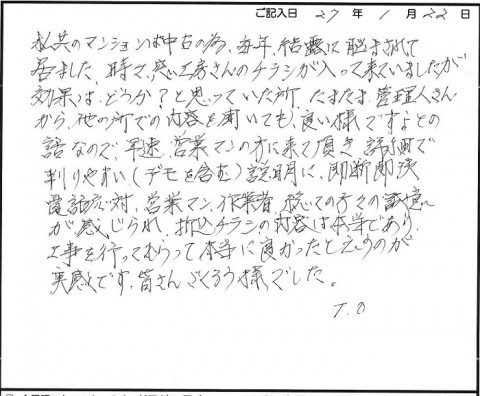 ご記入日 27年 1月 22日
私共のマンションは中古の為、毎年、結露に悩まされて
居ました。時々、窓工房さんのチラシが入って来ていましたが
効果は、どうか?と思っていた所、たまたま、管理人さん
から、他の所での内容を聞いても、良い様ですよとの
話なので、早速、営業マンの方に来て頂き、詳細で
判りやすい(デモを含む)説明に、即断即決
電話応対、営業マン、作業者、総ての方々の誠意
が感じられ、折込チラシの内容は本当であり、
工事を行ってもらって本当に良かったと云うのが
実感です。皆さんごくろう様でした。
T.O